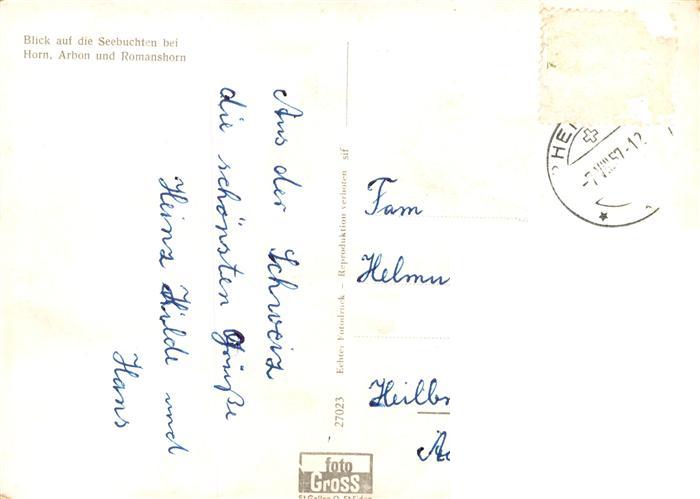 Blick auf die Seebuchten bei
Horn, Arbon und Romanshorn
Aus der Schweiz
die schönsten Grüße
Heinz Hilde und
Hans
27023 Echter Fotodruck - Reproduktion verboten sif
Fam
Helmu
Heilbr
HEI
-7.VIII.57-12
foto
GROSS
St Gallen O, St Fiden